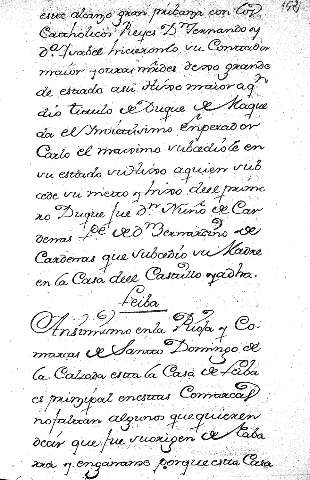 este alcanço gran pribanza con los
Catholicos Reyes Dn Fernando y
Da Isabel hicieronlo su Contador
maior y otras mrdes de no grande
de estado a su Hixo maior aqn
dio titulo de Duque de Maque
da el Invictisimo Enperador
Carlo el maximo subcediole en
su estado su Hixo a quien sub
cede su nieto y hixo del primer
ro Duque fue dn Nuño de Car
denas Pe de dn Bernardino de
Cardenas que subcedio su Madre
en la Casa de el Castillo y adha.
Leiba
Ansimismo en la Rioja y Co-
marcas de Santo Domingo de
la Calzada esta la Casa de Leiba
es prinzipal en estas Comarcas
no faltan algunos que quieren
decir que fue su origen de Naba
rra y enganarme porque esta Casa